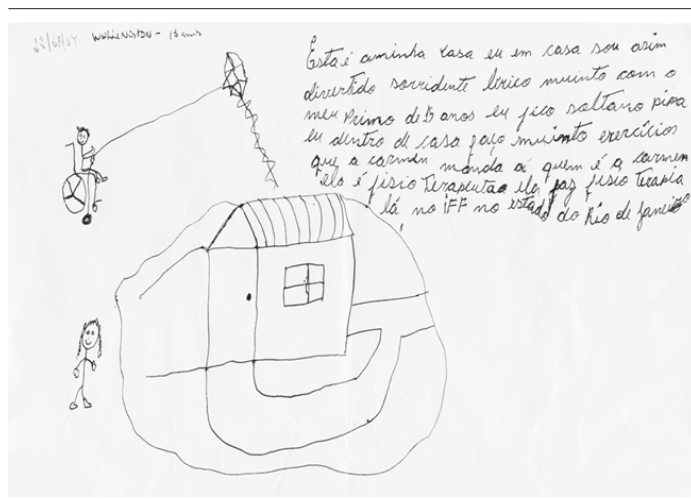 22/08/07 WELLINGTON - 13 anos
Esta é aminha casa eu em casa sou asim
divertido sorridente brico muinto com o
meu Primo de 5 anos eu fico soltano pipa
eu dentro de casa faço muinto exercícios
que a carmen manda a quem é a carmen
ela é fisio Terapeuta ela faz fisio Terapia
lá no iFF no estado do Rio de Janeiro